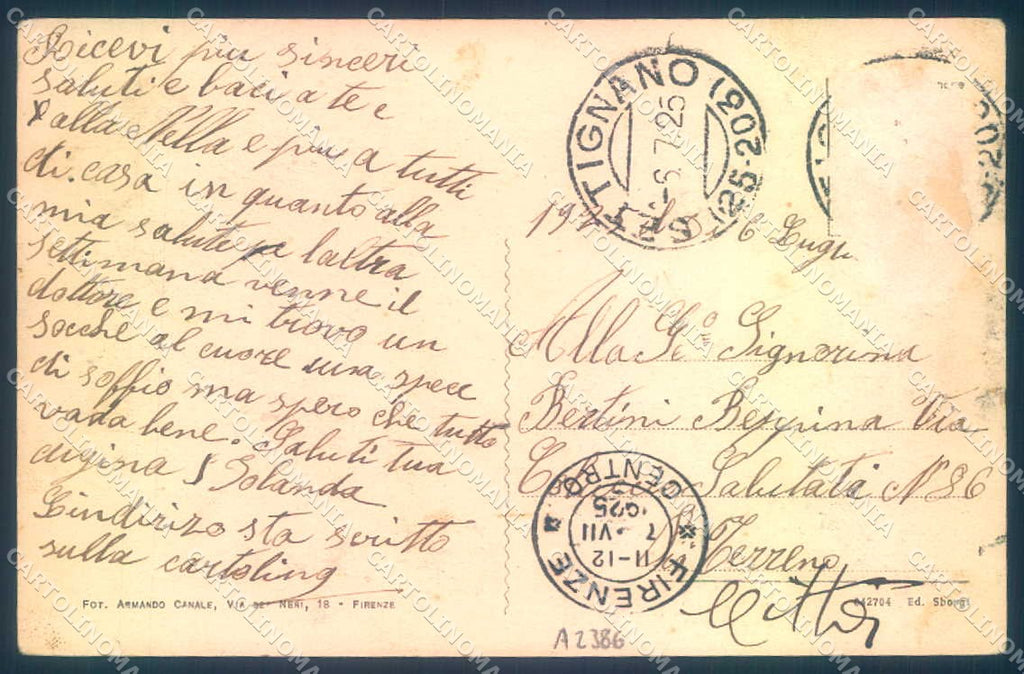 Ricevi piu sinceri
saluti e baci a te e
alla Nella e piu a tutti
di casa in quanto alla
mia salute laltra
settimana venne il
dottore e mi trovo un
al cuore una spece
di soffio ma spero che tutto
vada bene. Saluti tua
Iolanda
Lindirizo sta scritto
sulla cartolina
FOT. ARMANDO CANALE, VIA DE' NERI, 18 - FIRENZE
SETTIGNANO (25-203)
-6.7.25
6 Lugl
Alla Signorina
Bertini Beppina Via
Salutati N 36
Terreno
Città
FIRENZE CENTRO
11-12
7 VII
1925
642704 Ed. Sborgi
A2386
CARTOLINOMANIA